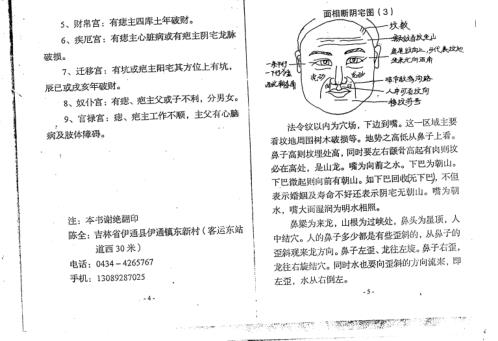 5、财帛宫：有痣主四库土年破财。
6、疾厄宫：有痣主心脏病或有疤主阴宅龙脉
破损。
7、迁移宫：有坑或疤主阳宅其方位上有坑，
辰巳或戌亥年破财。
8、奴仆宫：有痣、疤主父或子不利，分男女。
9、官禄宫：有痣、疤主工作不顺，主父有心脑
病及肢体障碍。
注：本书谢绝翻印
陈全：吉林省伊通县伊通镇东新村（客运东站
道西30米）
电话：0434－4265767
手机：13089287025
- 4 -
面相断阴宅图（3）
法令纹以内为穴场，下边到嘴。这一区域主要
看坟地周围树木破损等。地势之高低从鼻子上看。
鼻子高则坟埋处高，同时要左右颧骨高起有肉则坟
必在高处，是山龙。嘴为向前之水。下巴为朝山。
下巴微起则向前有朝山。如下巴回收(无下巴)，不但
表示婚姻及寿命不好还表示阴宅无朝山。嘴为朝
水，嘴大而湿润为明水相照。
鼻梁为来龙，山根为过峡处，鼻头为星顶，人
中结穴。人的鼻子多少都是有些歪斜的，从鼻子的
歪斜观来龙方向。鼻子左歪、龙往左旋。鼻子右歪，
龙往右旋结穴。同时水也要向歪斜的方向流来，即
左歪，水从右倒左。
- 5 -